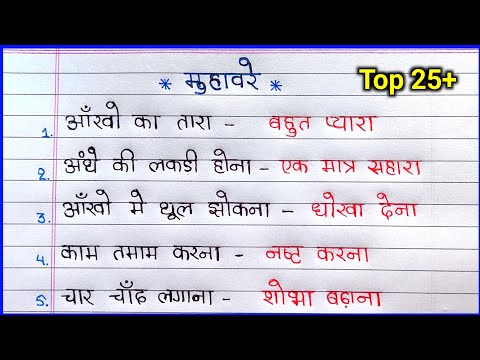 * मुहावरे *
Top 25+
1. आँखो का तारा - बहुत प्यारा
2. अंधे की लकडी होना - एक मात्र सहारा
3. आँखो मे धूल झोकना - धोखा देना
4. काम तमाम करना - नष्ट करना
5. चार चाँद लगाना - शोभा बढ़ाना